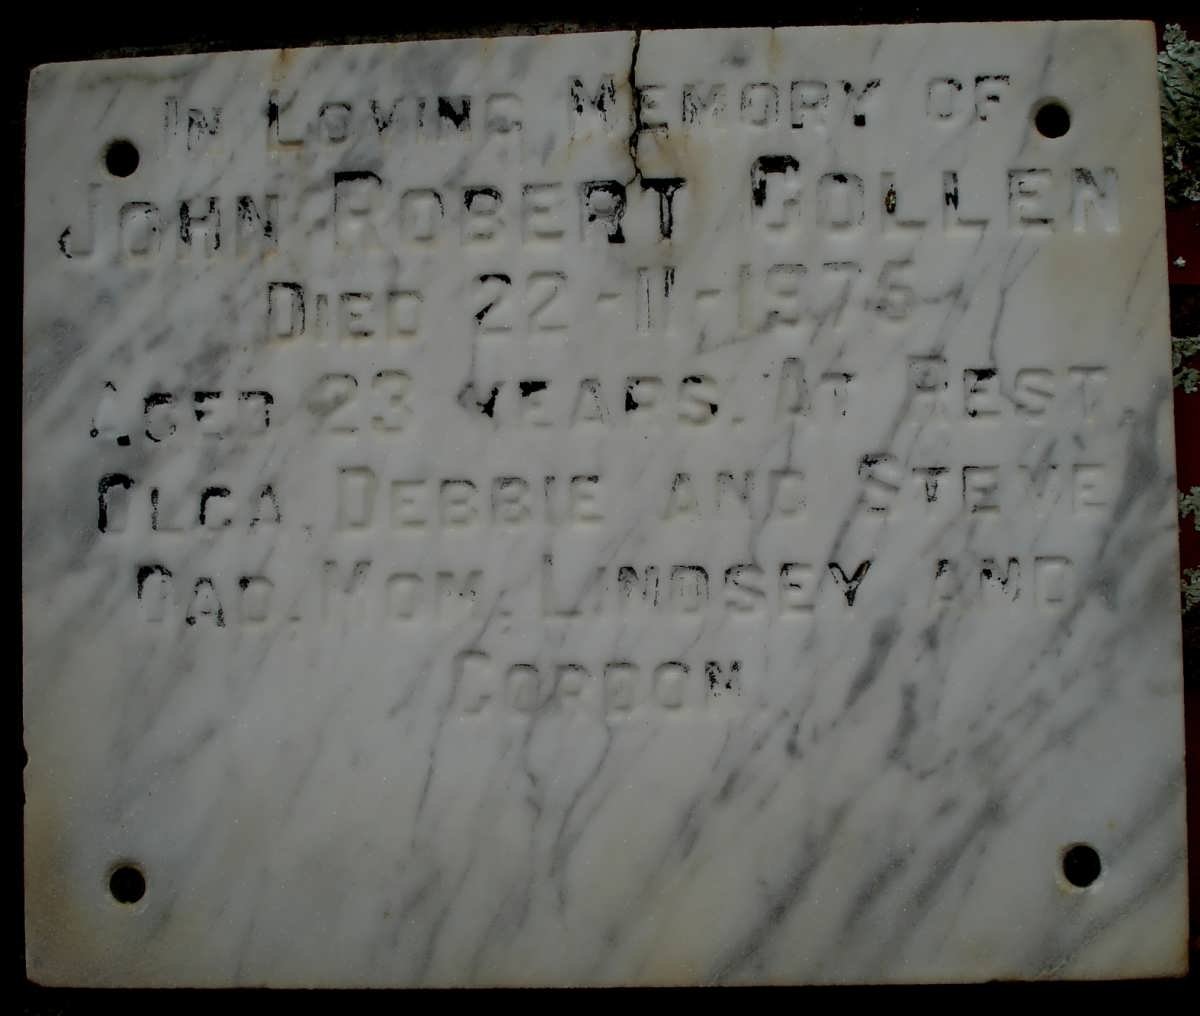 IN LOVING MEMORY OF
JOHN ROBERT GOLLEN
DIED 22-11-1975
AGED 23 YEARS. AT REST.
OLGA, DEBBIE AND STEVE
DAD, MOM, LINDSEY AND
GORDON